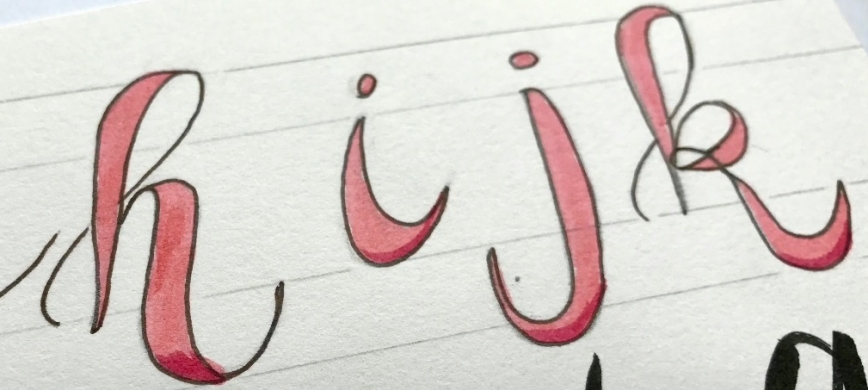 h i j k